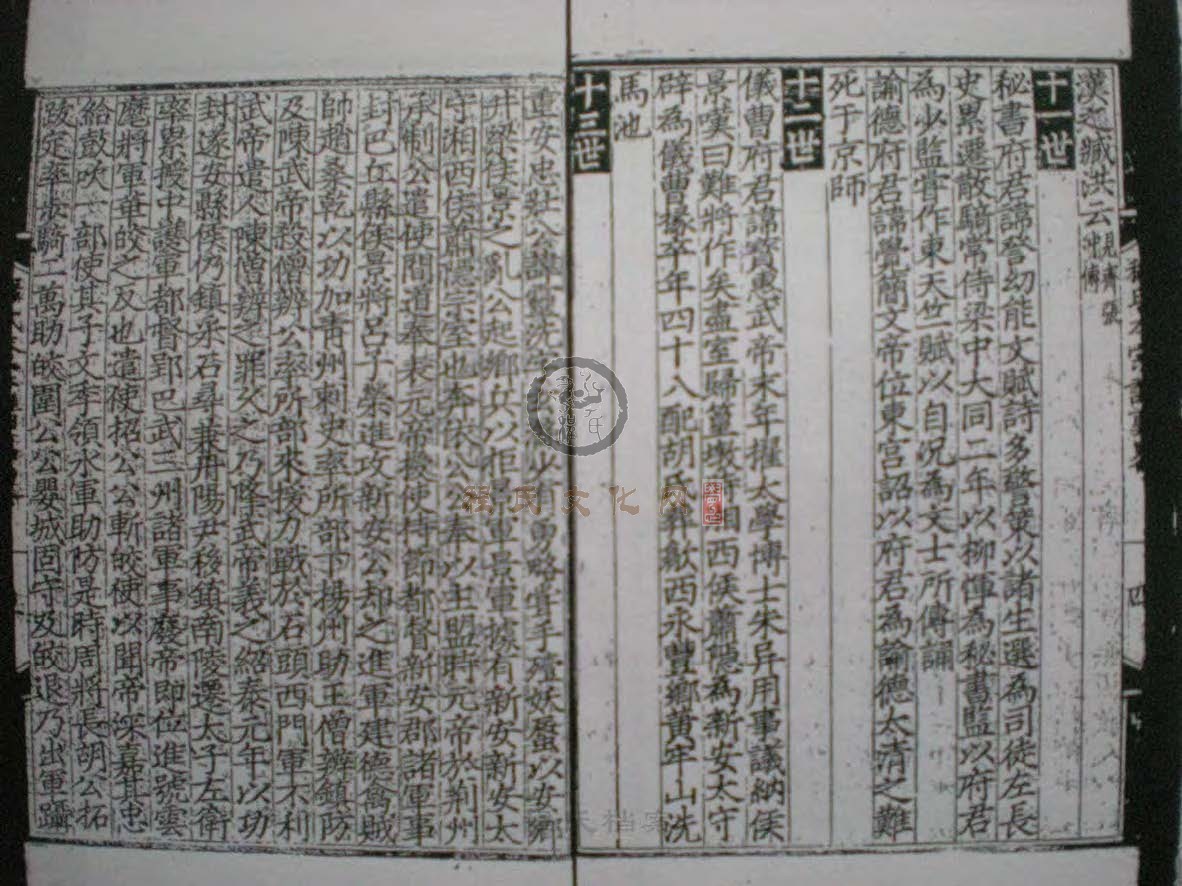 漢之臧洪云見齊張冲傳
十一世
秘書府君諱詧幼能文賦詞多警策以諸生選為司徒左長
史累遷散騎常侍梁中大同二年以柳惲為秘書監以府君
為少監嘗作東天竺賦以自况為文士所傳誦
諭德府君諱覺簡文帝位東宫詔以府君為諭德太清之難
死于京師
十二世
儀曹府君諱寳惠武帝末年擢太學博士朱异用事議納侯
景嘆曰難將作矣盡室歸篁墩 湘西侯蕭隱為新安太守
辟為儀曹掾卒年四十八配胡氏葬歙西永豐鄉黄牢山洗
馬池
十三世
重安忠壯公諱靈洗字 少有勇略嘗手殪妖蜃以安鄉
井梁侯景之亂公起鄉兵以拒景軍景軍據有新安新安太
守湘西侯蕭隱宗室也奔依公公奉以主盟時元帝於荆州
承制公遣使間道奉表元帝授使持節都督新安郡諸軍事
封巴丘縣侯景將吕子榮進攻新安公却之進軍建德禽賊
帥趙桑乾以功加青州刺史率所部下揚州助王僧辨鎮防
及陳武帝殺僧辨公率所部来援力戰於石頭西門軍不利
武帝遣人陳僧辨之罪久之乃降武帝義之紹泰元年以功
封遂安縣侯仍鎮采石尋兼丹陽尹移鎮南陵遷太子左衛
率累授中護軍都督郢巴武三州諸軍事廢帝即位進號雲
麾將軍華皎之反也遣使招公公斬皎使以聞帝深嘉其忠
給鼓吹一部使其子文季領水軍助防是時周將長胡公拓
跋定率步騎二萬助皎圍公公嬰城固守及皎退乃出軍躡
程氏文化网